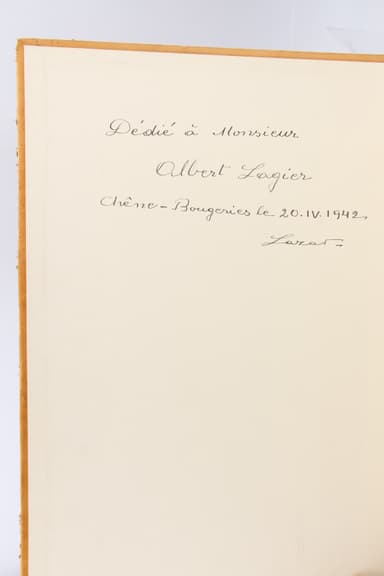 Dédié à Monsieur
Albert Lagier
Chêne-Bougeries le 20.IV.1942.